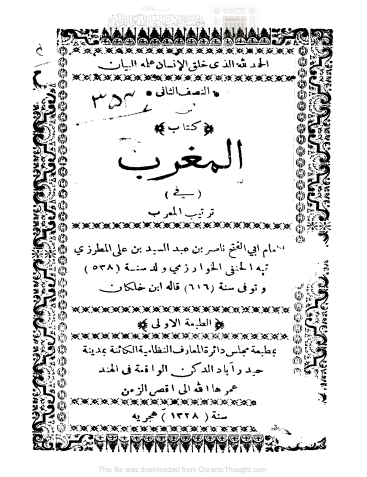 الحمد لله الذى خلق الانسان علمه البيان
النصف الثانى
٣٥٣
من
كتاب
المغرب
( في )
ترتيب المعرب
مام ابي الفتح ناصر بن عبد السيد بن على المطرزي
الحنفى الخوارزمي ولد سنة ( ٥٣٨ )
و توفى سنة (٦١٦) قاله ابن خلكان
الطبعة الاولى
بمطبعة مجلس دائرة المعارف النظامية الكائنة بمدينة
حيدرآباد الدكن الواقعة فى الهند
عمرها الله الى اقصى الزمن
سنة ( ١٣٢٨ ) هجريه
This file was downloaded from QuranicThought.com